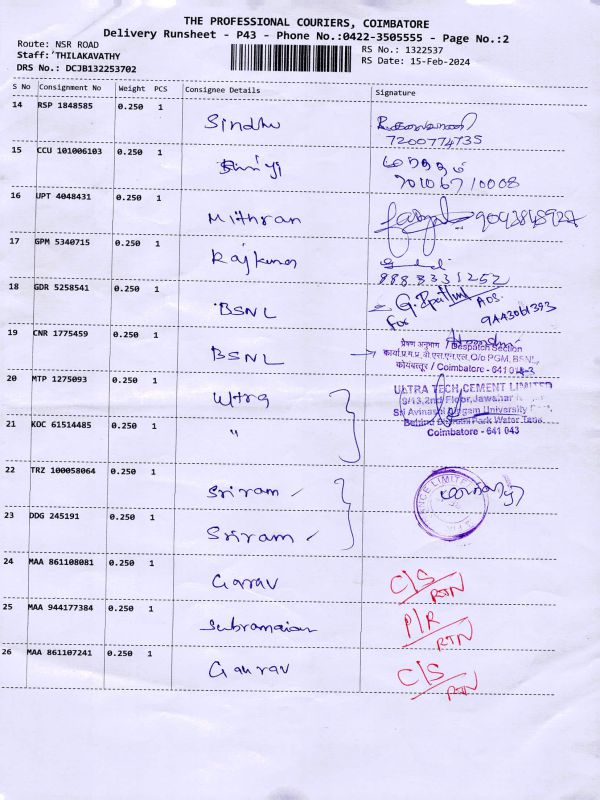 THE PROFESSIONAL COURIERS, COIMBATORE
Delivery Runsheet - P43 - Phone No.:0422-3505555 - Page No.:2
Route: NSR ROAD
RS No.: 1322537
Staff: THILAKAVATHY
RS Date: 15-Feb-2024
DRS No.: DCJB132253702
S No Consignment No Weight PCS Consignee Details Signature
14 RSP 1848585 0.250 1 Sindhu
7200774735
15 CCU 101006103 0.250 1
16 UPT 4048431 0.250 1 Mithran
17 GPM 5340715 0.250 1 Rajkumar
18 GDR 5258541 0.250 1 BSNL
For
19 CNR 1775459 0.250 1 BSNL
प्रेषण अनुभाग / Despatch Section
कार्या.प्र.म.प्र,बी.एस.एन.एल,O/o PGM, BSNL,
कोयंबत्तूर / Coimbatore - 641
20 MTP 1275093 0.250 1 Ultra
ULTRA TECH CEMENT LIMITED
9/13,2nd Floor,Jawahar
21 KOC 61514485 0.250 1 "
University
Behind Water Tank
Coimbatore - 641 043
22 TRZ 100058064 0.250 1 Sriram
23 DDG 245191 0.250 1 Sriram
24 MAA 861108081 0.250 1 Garav C/S
RTN
25 MAA 944177384 0.250 1 Subramaian P/R
RTN
26 MAA 861107241 0.250 1 Gaurav C/S
RTN